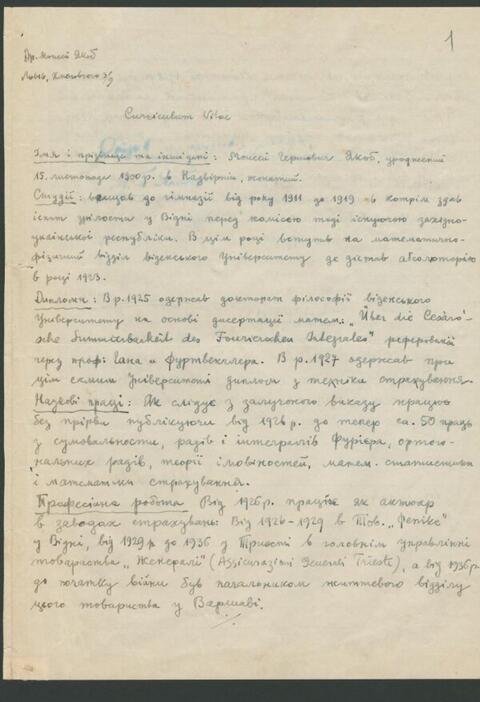 1
Др. Мойсей Якоб
Львів,
Curriculum Vitae
Імя і прізвище та інші дані: Мойсей Германович Якоб, уроджений
15. листопада 1900 р. в Надвірній, жонатий.
Студії: вчащав до гімназії від року 1911 до 1919 в котрім здав
іспит зрілости у Відні перед комісією тоді існуючої західно-
української республіки. В цім році вступив на математично-
фізичний відділ віденського Університету де дістав абсолюторію
в році 1923.
Дипломи: В р. 1925 одержав докторат фільософії віденського
Університету на основі дисертації матем.: „Über die Cesàro'-
sche Summierbarkeit des Fourierschen Integrales" реферованої
через проф. Гана и Фуртвенглера. В р. 1927 одержав при
цім самим Університеті диплом з техніки страхування.
Наукові праці: Як слідує з залученого виказу працюю
без прірви публікуючи від 1926 р. до тепер ca. 50 праць
з сумовальности, рядів і інтегралів Фурієра, ортого-
нальних рядів, теорії імовірностей, матем. статистики
і математики страхування.
Професійна робота Від 1926 р. працюю як актюар
в заводах страхувань: Від 1926-1929 в Тов. „Fenike"
у Відні, від 1929 р до 1936 у Триєсті в головнім управлінні
товариства „Женералі" (Assicurazioni Generali Trieste), а від 1936 р
до початку війни був начальником життєвого відділу
цього товариства у Варшаві.